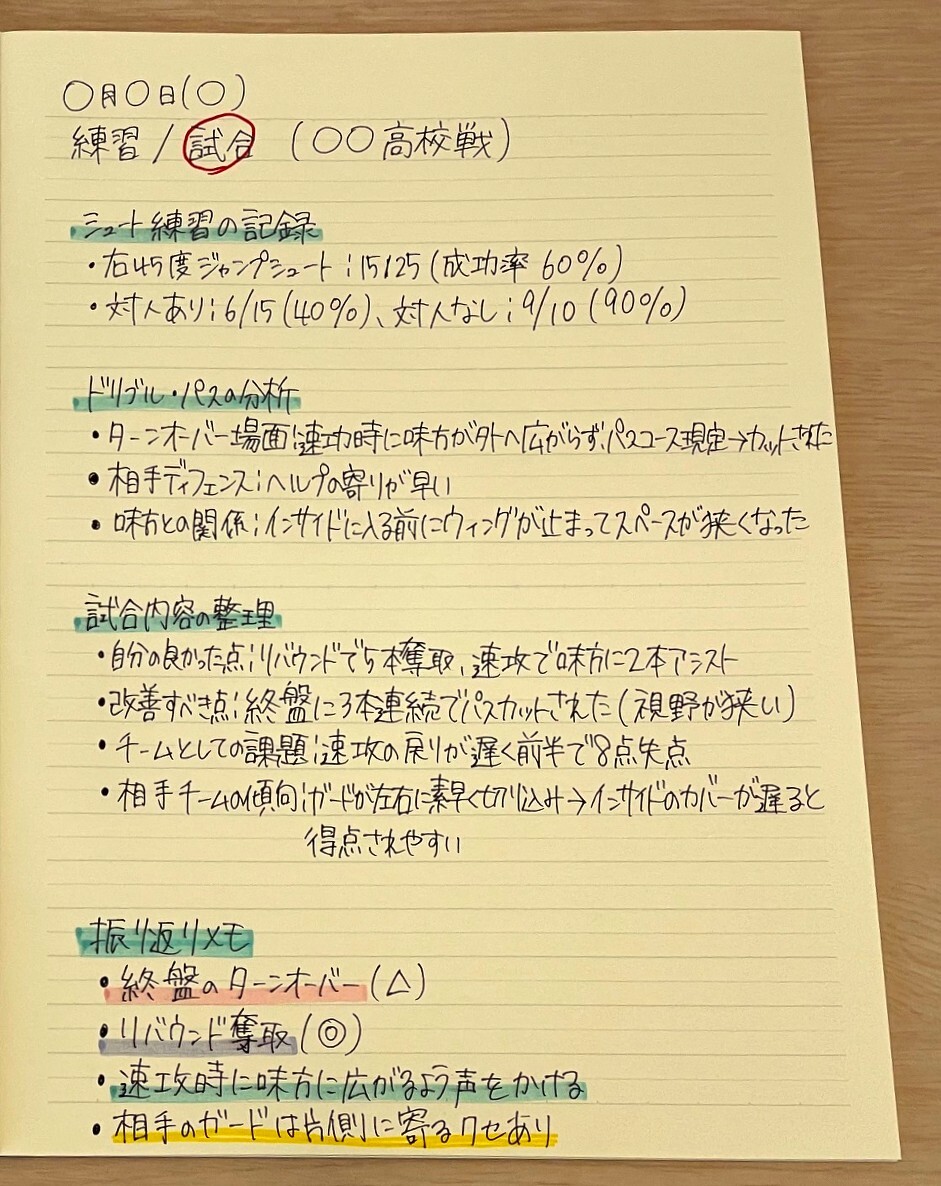 ○月○日(○)
練習 / 試合 (○○高校戦)
シュート練習の記録
・右45度ジャンプシュート:15/25(成功率 60%)
・対人あり:6/15(40%)、対人なし:9/10(90%)
ドリブル・パスの分析
・ターンオーバー場面:速功時に味方が外へ広がらず、パスコース現定→カットされた
・相手ディフェンス:ヘルプの寄りが早い
・味方との関係:インサイドに入る前にウィングが止まってスペースが狭くなった
試合内容の整理
・自分の良かった点:リバウンドで5本奪取、速攻で味方に2本アシスト
・改善すべき点:終盤に3本連続でパスカットされた(視野が狭い)
・チームとしての課題:速攻の戻りが遅く前半で8点失点
・相手チームの傾向:ガードが左右に素早く切り込み→インサイドのカバーが遅ると
得点されやすい
振り返りメモ
・終盤のターンオーバー(△)
・リバウンド奪取(◎)
・速攻時に味方に広がるよう声をかける
・相手のガードは片側に寄るクセあり